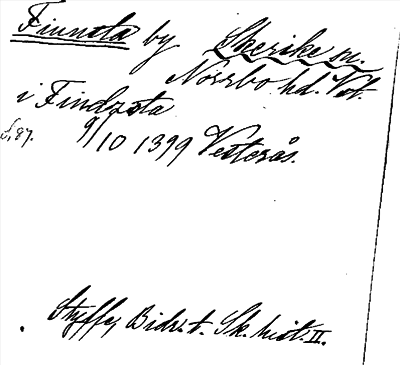 Finnsta by Skerike sn.
Norrbo hd. Vst.
i Findzsta
s. 87. 9/10 1399 Vesterås.
Styffe, Bidr. t. Sk. hist. II.